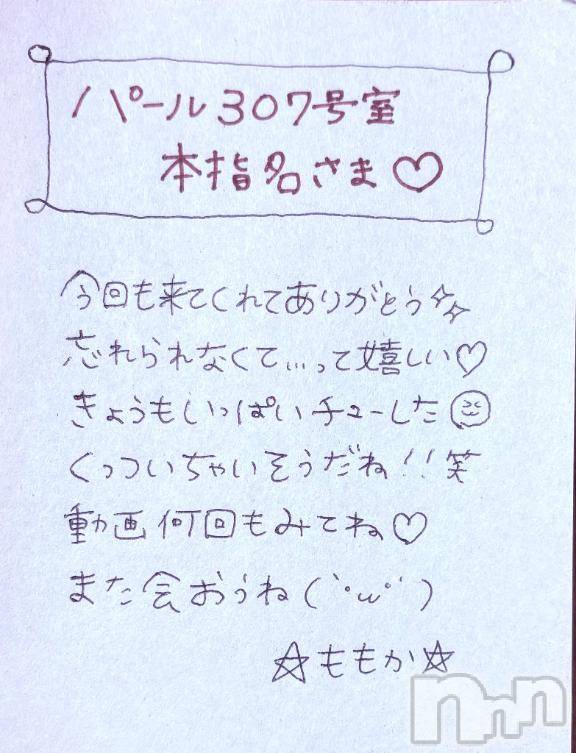 パール307号室
本指名さま♡
今回も来てくれてありがとう✨
忘れられなくて...って嬉しい♡
きょうもいっぱいチューした
くっついちゃいそうだね!!笑
動画何回もみてね♡
また会おうね(`･ω･´)
☆ももか☆
nnn